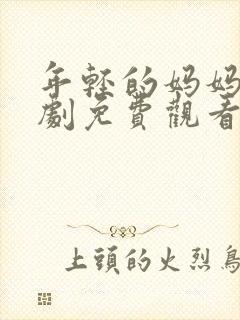 年轻的妈妈
劇免費觀看
上頭的火烈鳥